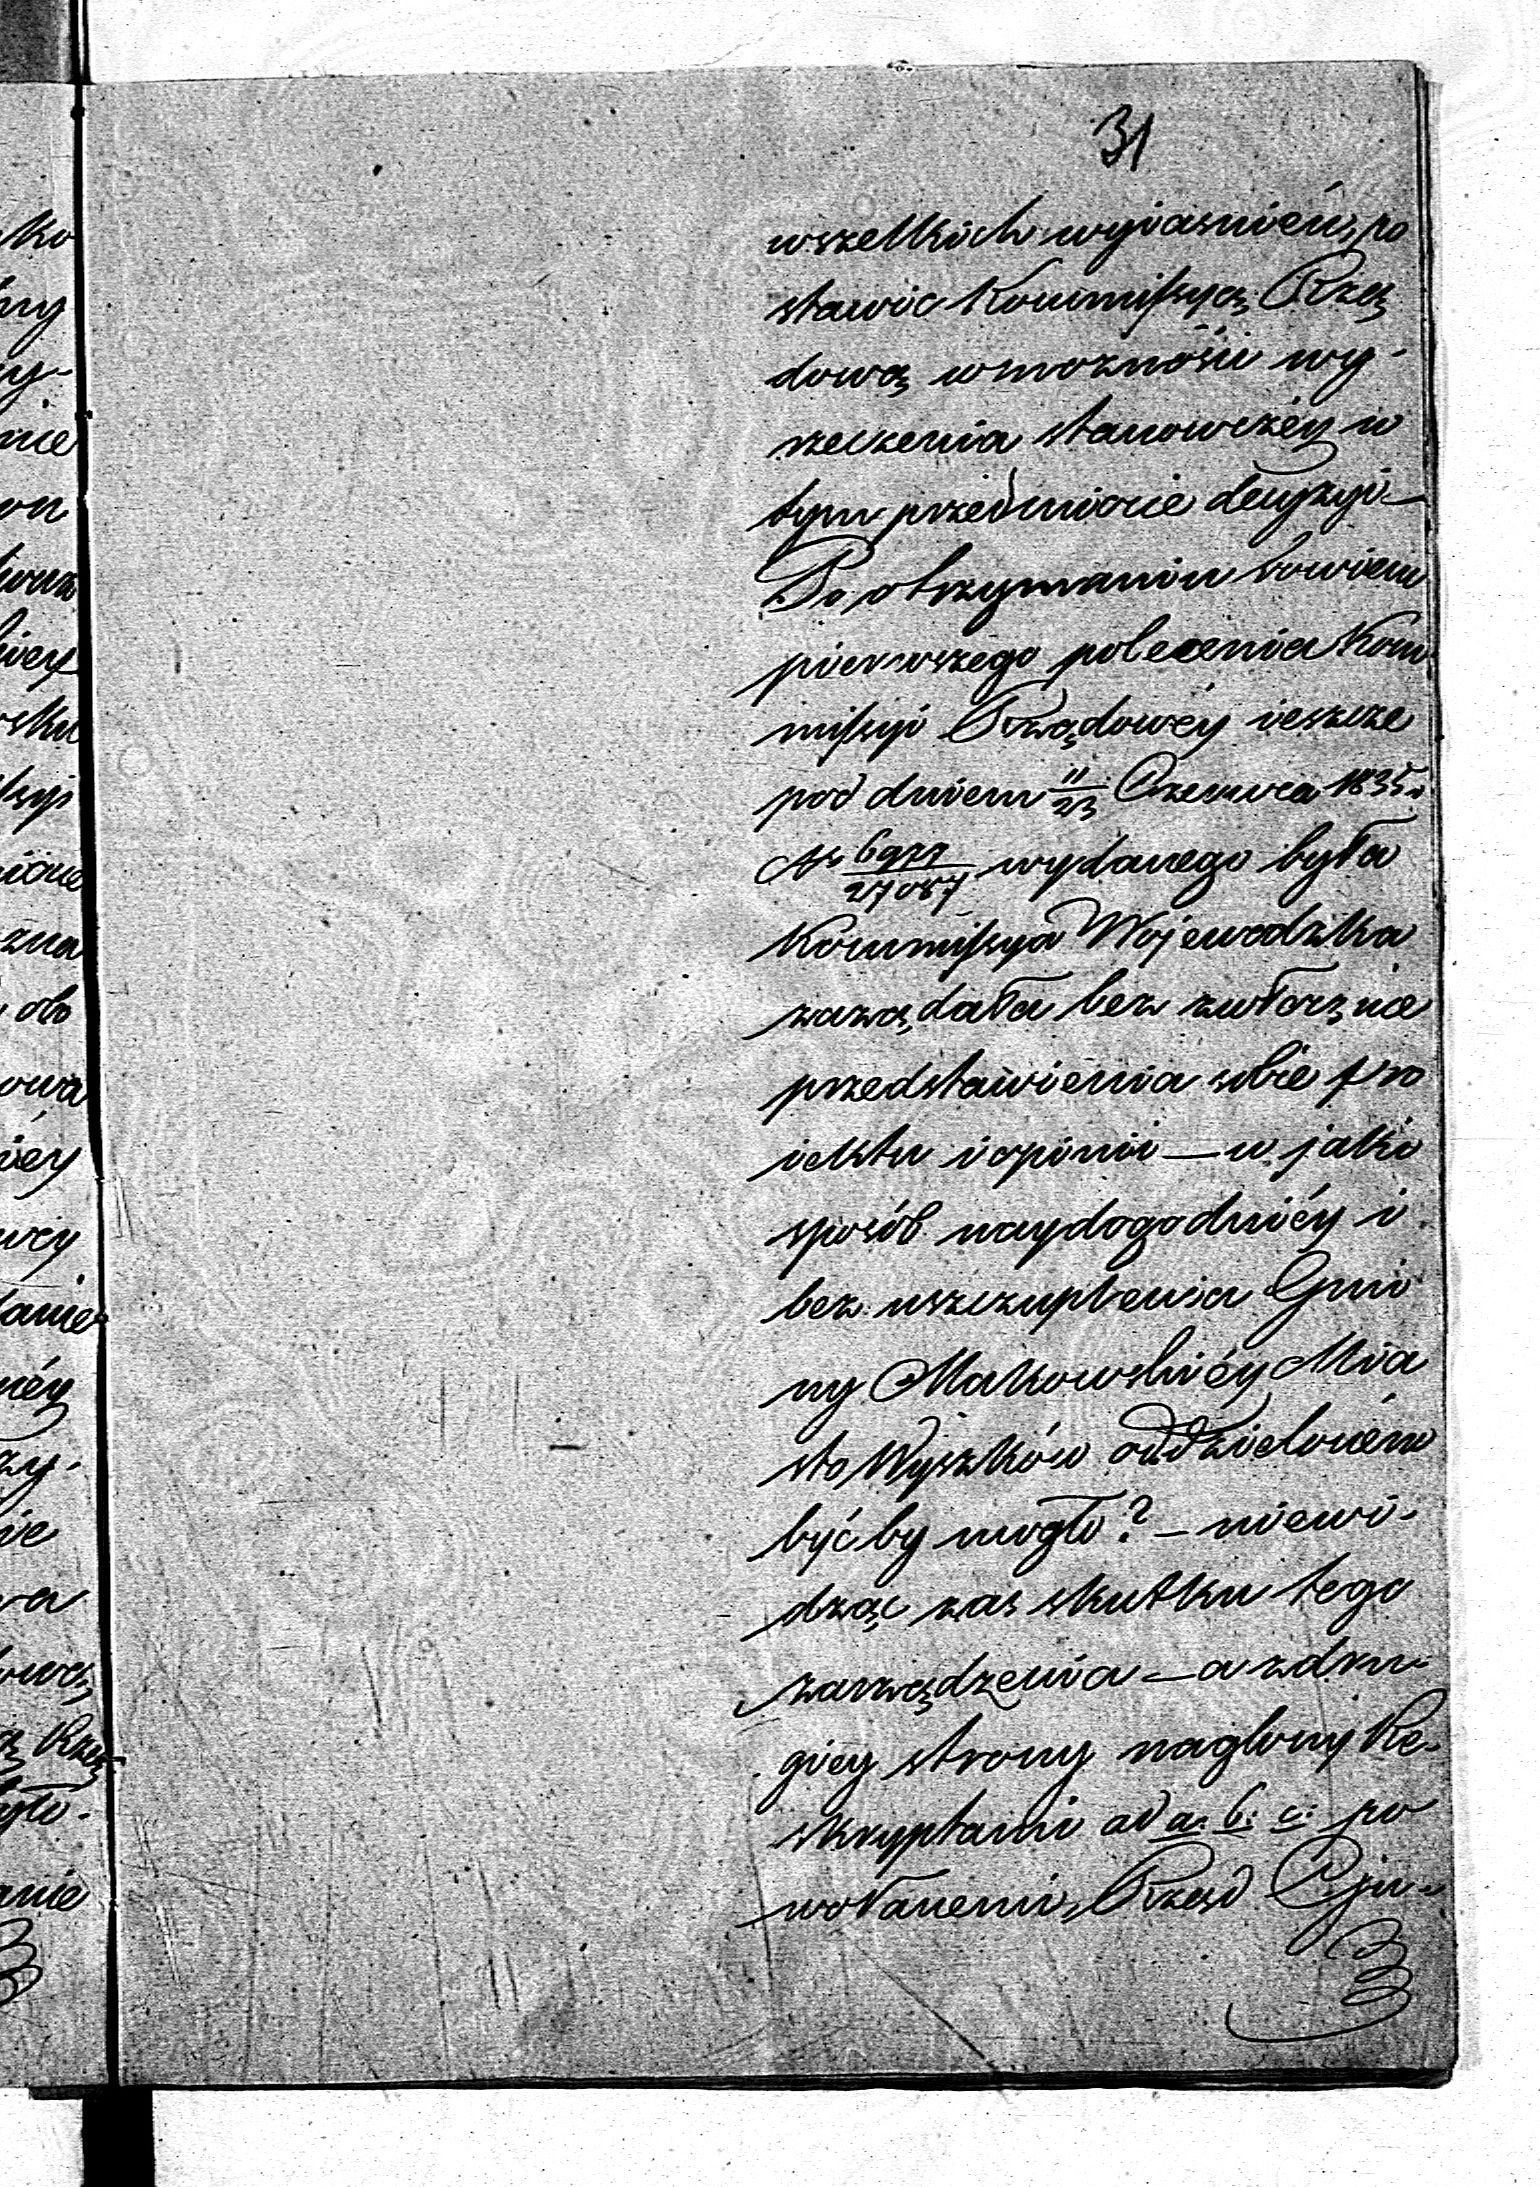 31
wszelkich wyiasnień, po
stawić Kommissyą Rzą
dową wmożności wy-
rzeczenia stanowczéy w
tym przedmiocie decyzyi —
Po otrzymaniu bowiem
pierwszego polecenia Kom
missyi Rządowéy ieszcze
pod dniem 11/23 Czerwca 1835 r.
Nr wydanego była
Kommissya Wojewodzka
zażądała bez zwłocznie
przedstawienia sobie pro
iektu i opinii — w jaki
sposób naydogodniéy i
bez uszczuplenia Gmi
ny Makowskiéy Mia
sto Wyszków oddzielonem
być by mogło? — niewi-
dząc zas skutku tego
zarządzenia — a zdru-
giey strony naglony Re-
skryptami ad a: b: c: po
wołanemi, Rząd Gju-